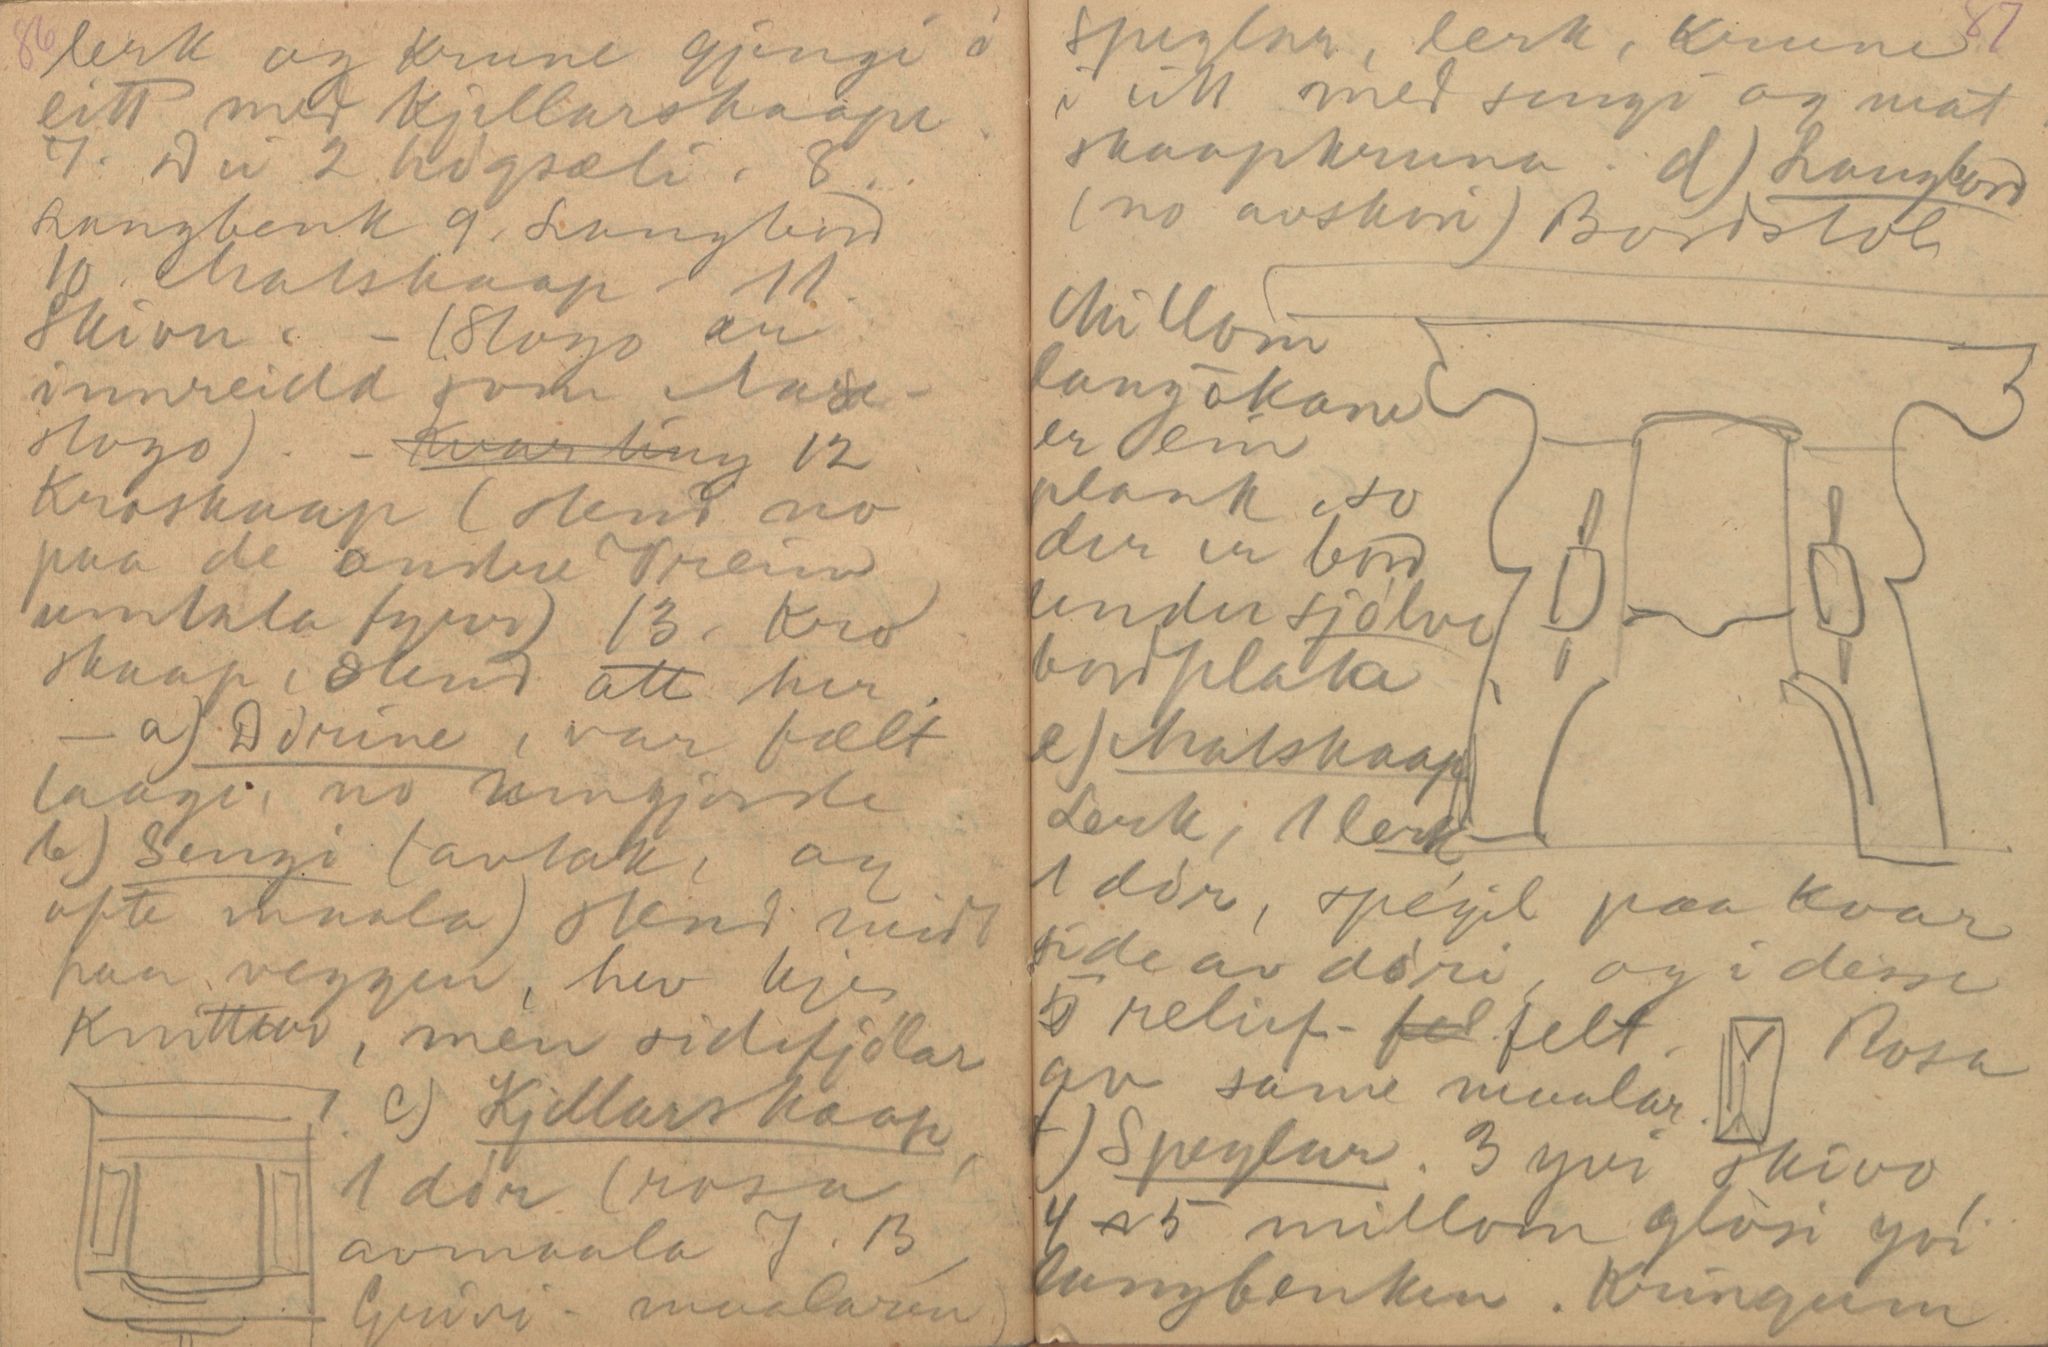 86
lerk og krune gjengi i
eitt med kjellarskaape.
7. Dei 2 högsæti. 8.
Langbenk 9. Langbord
10. Matskaap 11.
Skivn. - (Stogo er
innreidd som Aase-
stogo). - Kvar ting 12.
Kroskaap (stend no
paa de andre Treim
umtala fyrr) 13. Kro
skaap, stend att her.
- a) Dörine, var fælt
laage, no umgjorde
b) Sengi (avlak, og
ofte maala) stend midt
paa veggen, hev kje
knittar, men sidefjölar
c) Kjellarskaap,
1 dör (rosa
avmaala 7. B
Gruvi - maalaren)
87
Speglar, lerk, krune
i eitt med sengi og mat
skaapkruna. d) Langbord
(no avskori) Bordstol
Millom
langôkane
er ein
plank, so
der er bord
under sjölve
bordplata
e) Matskaap
Lerk, 1 lerk
1 dör, spegil paa kvar
side av döri, og i desse
5 relief- fel felt. Rosa
av same maalar.
f) Speglar. 3 yvi skivo
4 a 5 millom glösi yvi
langbenken. Kringum